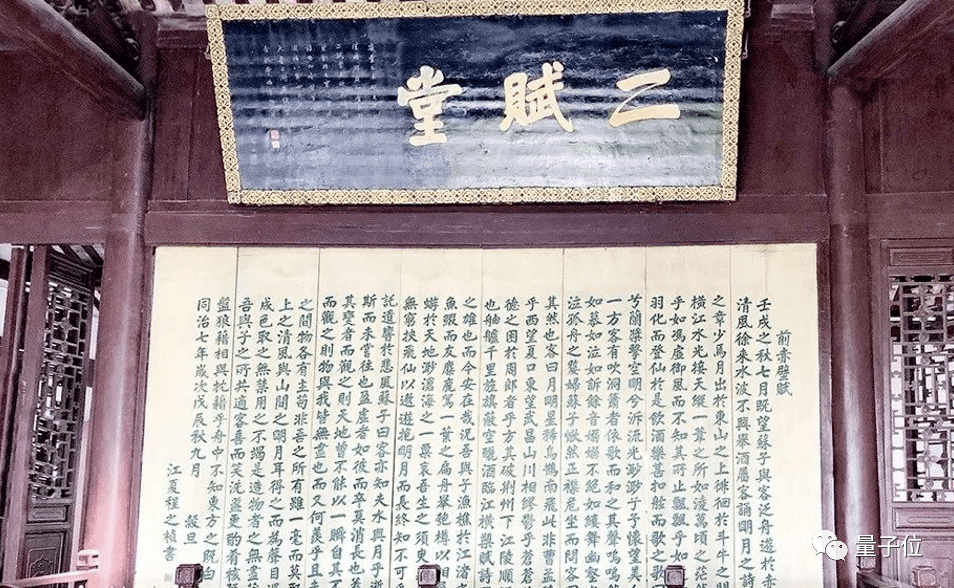 二賦堂
前赤壁賦
壬戌之秋七月既望蘇子與客泛舟遊於赤
清風徐來水波不興舉酒屬客誦明月之詩
之章少焉月出於東山之上徘徊於斗牛之
橫江水光接天縱一葦之所如凌萬頃之茫
乎如馮虛御風而不知其所止飄飄乎如
羽化而登仙於是飲酒樂甚扣舷而歌之歌
兮蘭槳擊空明兮泝流光渺渺于予懷望美
一方客有吹洞簫者依歌而和之其聲嗚嗚
如慕如泣如訴餘音嫋嫋不絕如縷舞幽壑
泣孤舟之嫠婦蘇子愀然正襟危坐而問客
其然也客曰月明星稀烏鵲南飛此非曹孟
乎西望夏口東望武昌山川相繆鬱乎蒼蒼
德之困於周郎者乎方其破荆州下江陵順
也舳艫千里旌旗蔽空釃酒臨江橫槊賦詩
之雄也而今安在哉況吾與子漁樵於江渚
魚鰕而友麋鹿駕一葉之扁舟舉匏樽以相
蜉於天地渺滄海之一粟哀吾生之須臾
無窮挾飛仙以遨遊抱明月而長終知不可
託遺響於悲風蘇子曰客亦知夫水與月乎逝
斯而未嘗往也盈虛者如彼而卒莫消長也蓋
其變者而觀之則天地曾不能以一瞬自其不
而觀之則物與我皆無盡也而又何羨乎且
之間物各有主苟非吾之所有雖一毫而莫
上之清風與山間之明月耳得之而
成色取之無禁用之不竭是造物者之無盡
吾與子之所共適客喜而笑洗盞更酌肴核
盤狼籍相與枕藉乎舟中不知東方之既白
同治七年歲次戊辰秋九月 榖旦
江夏程之楨書
量子位